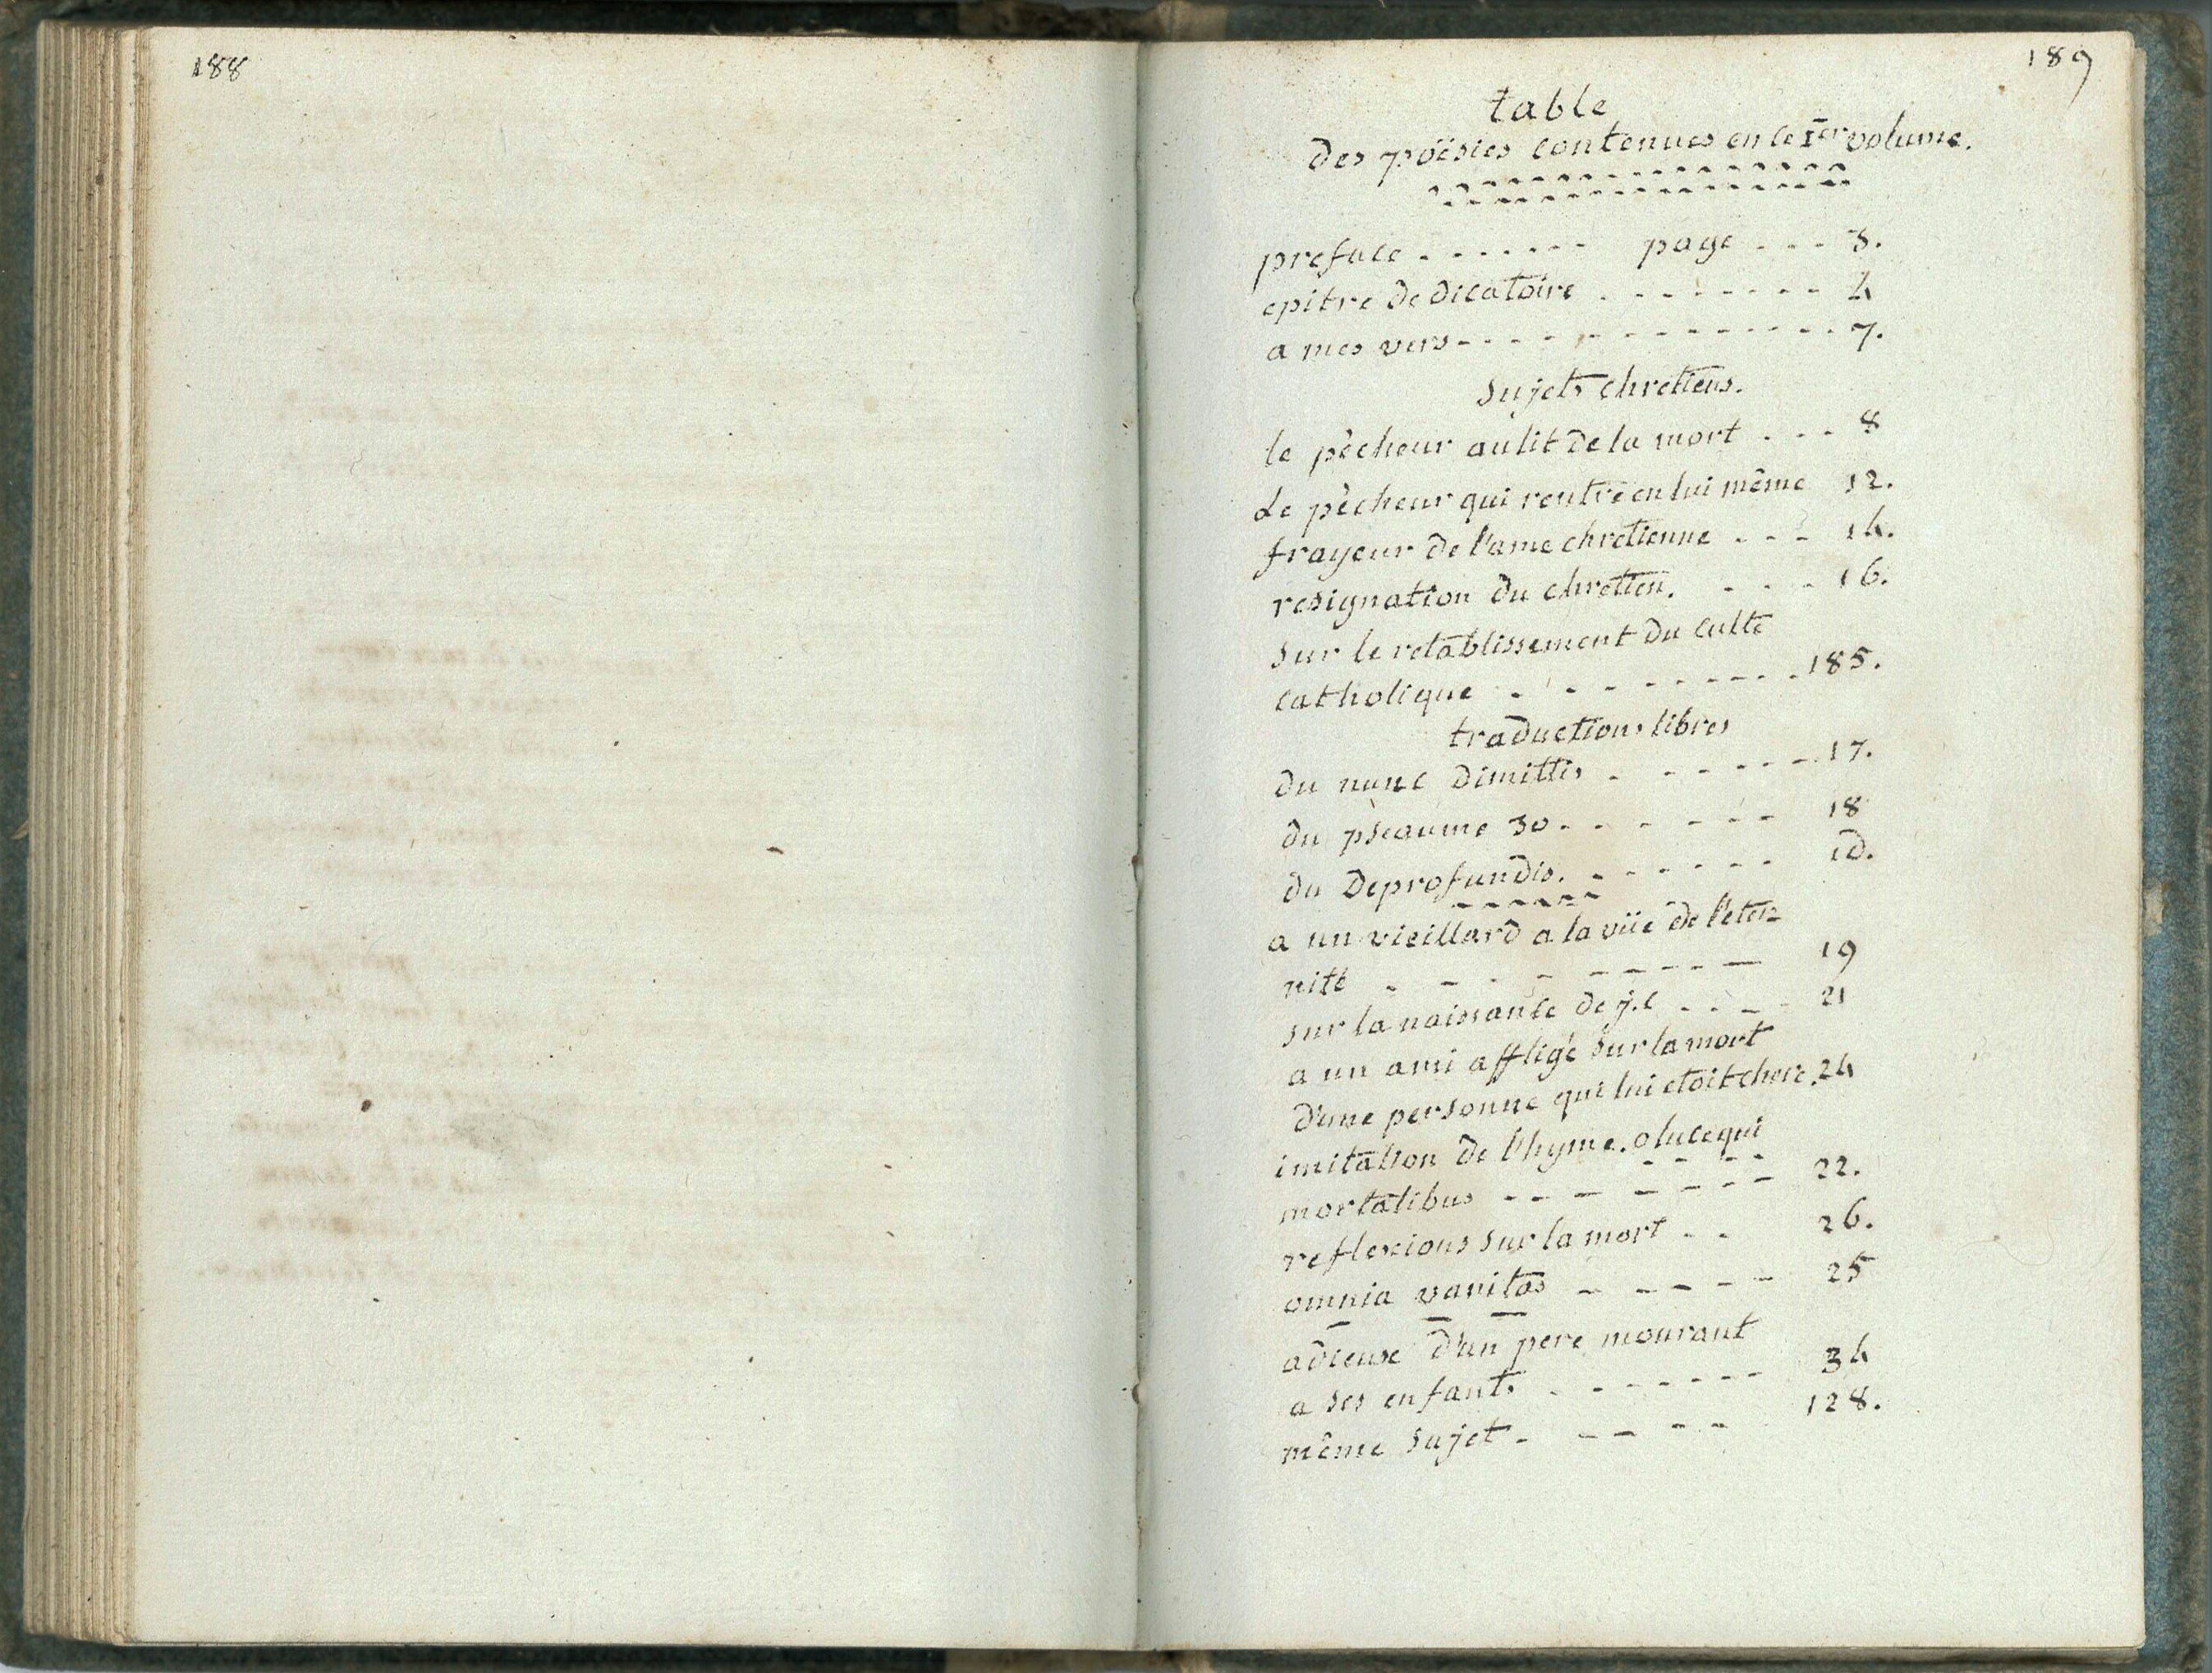 188
189
table
des poësies contenues en le Ier volume.
preface . . . . . . . page . . . 3.
epitre dedicatoire . . . . . . . . 4
a mes vers . . . . . . . . . . . . 7.
sujets chretiens.
le pècheur au lit de la mort . . . 8
Le pècheur qui rentre en lui même 12.
frayeur de l'ame chretienne . . . 14.
resignation du chretien. . . . . 16.
sur le retablissement du culte
catholique . . . . . . . . . . 185.
traductions libres
du nunc dimittis . . . . . . . 17.
du pseaume 30 . . . . . . . 18
du deprofundis. . . . . . . . id.
a un vieillard a la vüe de l'eter=
nité . . . . . . . . . . 19
sur la naissance de j.c . . . . 21
a un ami affligé sur la mort
d'une personne qui lui etoit chere. 24
imitation de l'hyme. o luce qui
mortalibus . . . . . . . . 22.
reflexions sur la mort . . 26.
omnia vanitas . . . . . 25
adieux d'un pere mourant
a ses enfants . . . . . . . . 34
même sujet . . . . . . 128.